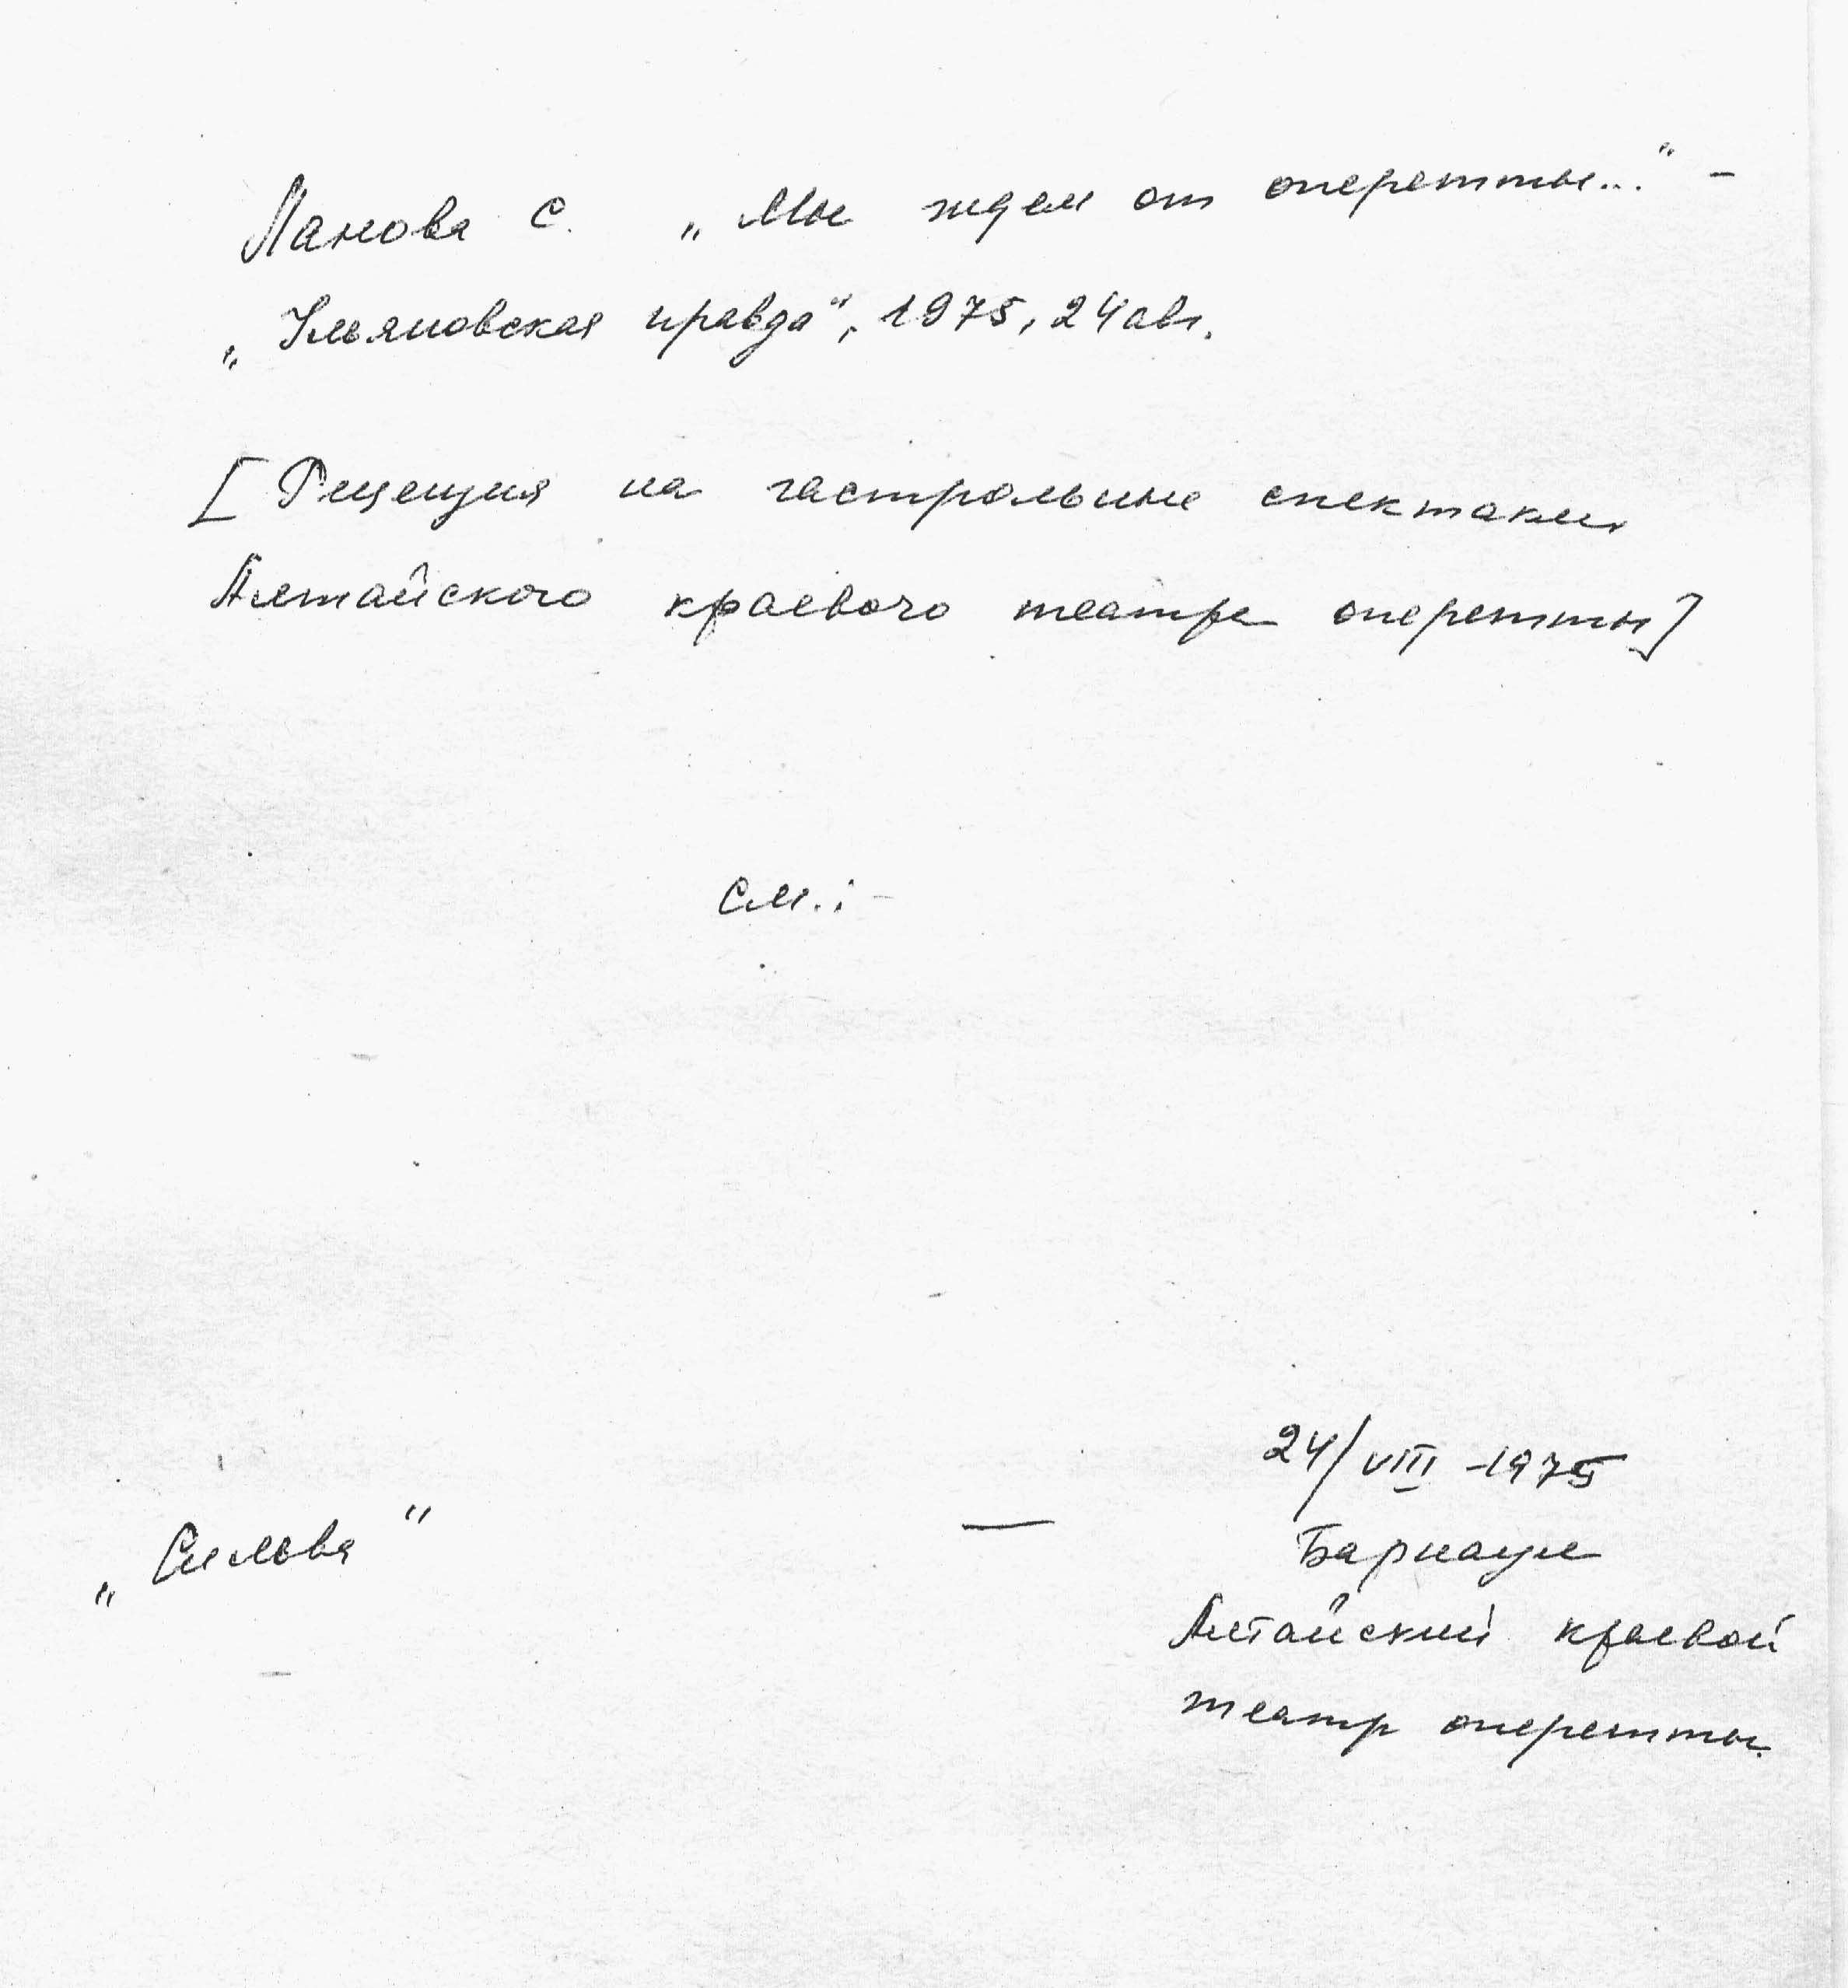 Панова С. „Мы ждем от оперетты..." –
„Ульяновская правда", 1975, 24 авг.
[Рецензия на гастрольные спектакли
Алтайского краевого театра оперетты]
См.:
24/VIII -1975
„Сильва" — Барнаул
Алтайский краевой
театр оперетты.